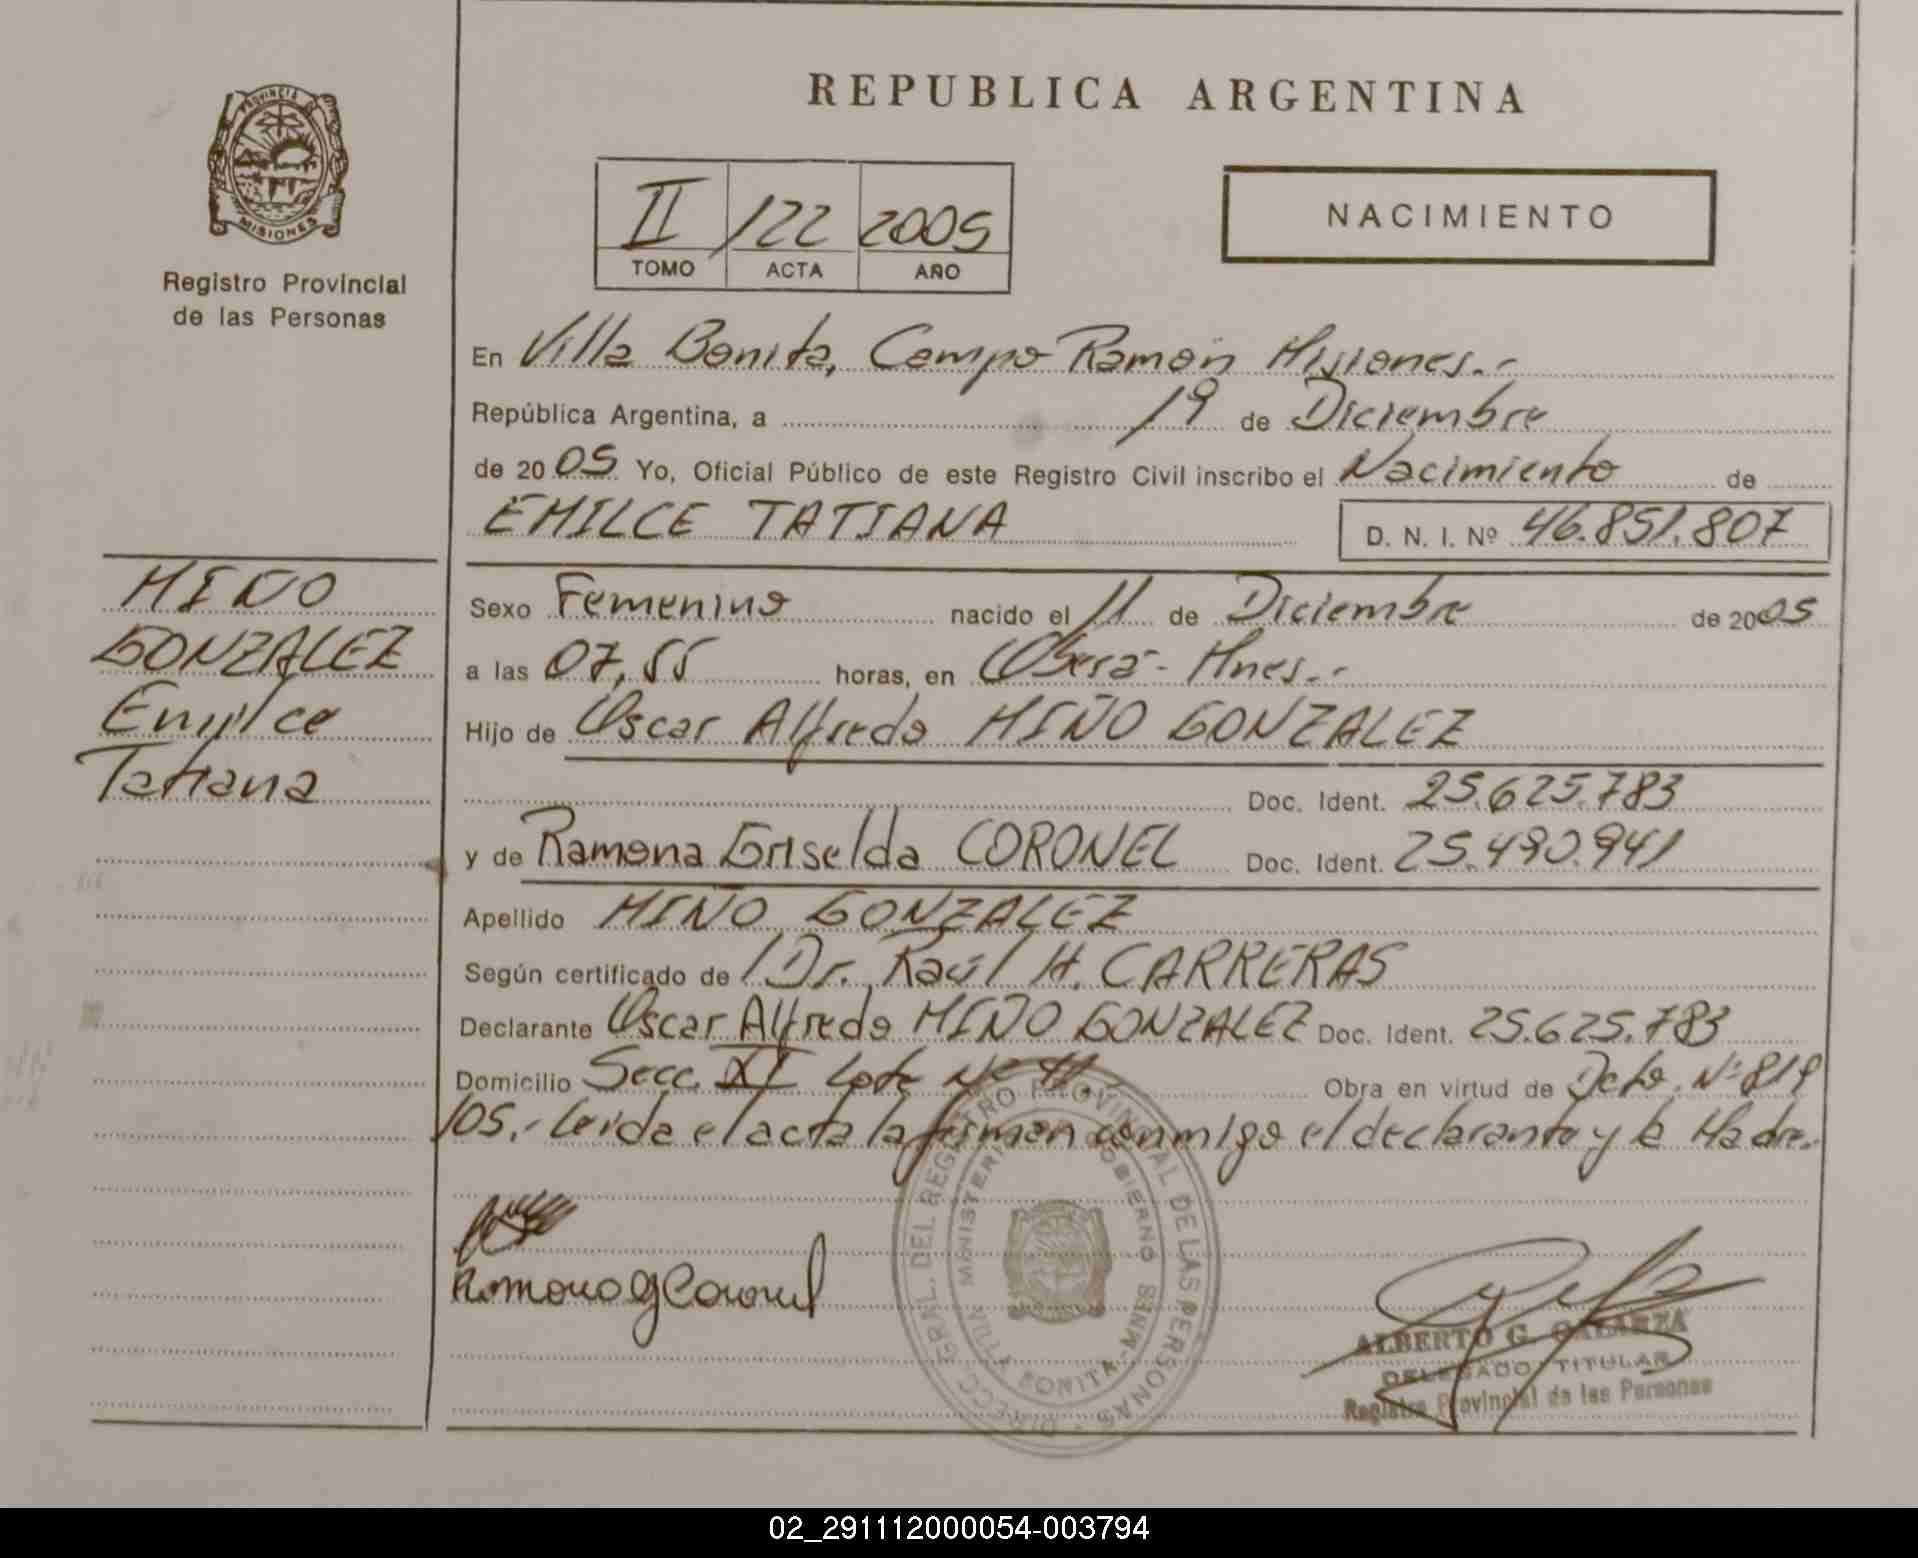 REPUBLICA ARGENTINA
PROVINCIA DE
MISIONES
Registro Provincial
de las Personas
II 122 2005
TOMO ACTA AÑO
NACIMIENTO
En Villa Bonita, Campo Ramón Misiones.-
República Argentina, a 19 de Diciembre
de 2005 Yo, Oficial Público de este Registro Civil inscribo el Nacimiento de
EMILCE TATIANA D. N. I. Nº 46.851.807
MIÑO
GONZALEZ
Emilce
Tatiana
Sexo Femenino nacido el 11 de Diciembre de 2005
a las 07,55 horas, en Oberá - Mnes.-
Hijo de Oscar Alfredo MIÑO GONZALEZ
Doc. Ident. 25.625.783
y de Ramona Griselda CORONEL Doc. Ident. 25.490.941
Apellido MIÑO GONZALEZ
Según certificado de Dr. Raúl H. CARRERAS
Declarante Oscar Alfredo MIÑO GONZALEZ Doc. Ident. 25.625.783
Domicilio Secc. XI Lote Nº 11 Obra en virtud de Dcto. Nº 819
/05.- Leida el acta la firman conmigo el declarante y la Madre.
Ramona G Coronel
DIRECC. GRAL. DEL REGISTRO PROVINCIAL DE LAS PERSONAS
MINISTERIO GOBIERNO
VILLA BONITA - MNES
ALBERTO G. GALARZA
DELEGADO TITULAR
Registro Provincial de las Personas
02_291112000054-003794